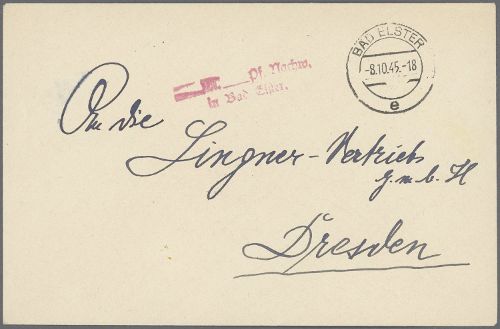 BAD ELSTER
-8.10.45.-18
e
Pf. Nachw.
in Bad Elster.
An die
Lingner-Vertrieb
g.m.b.H
Dresden